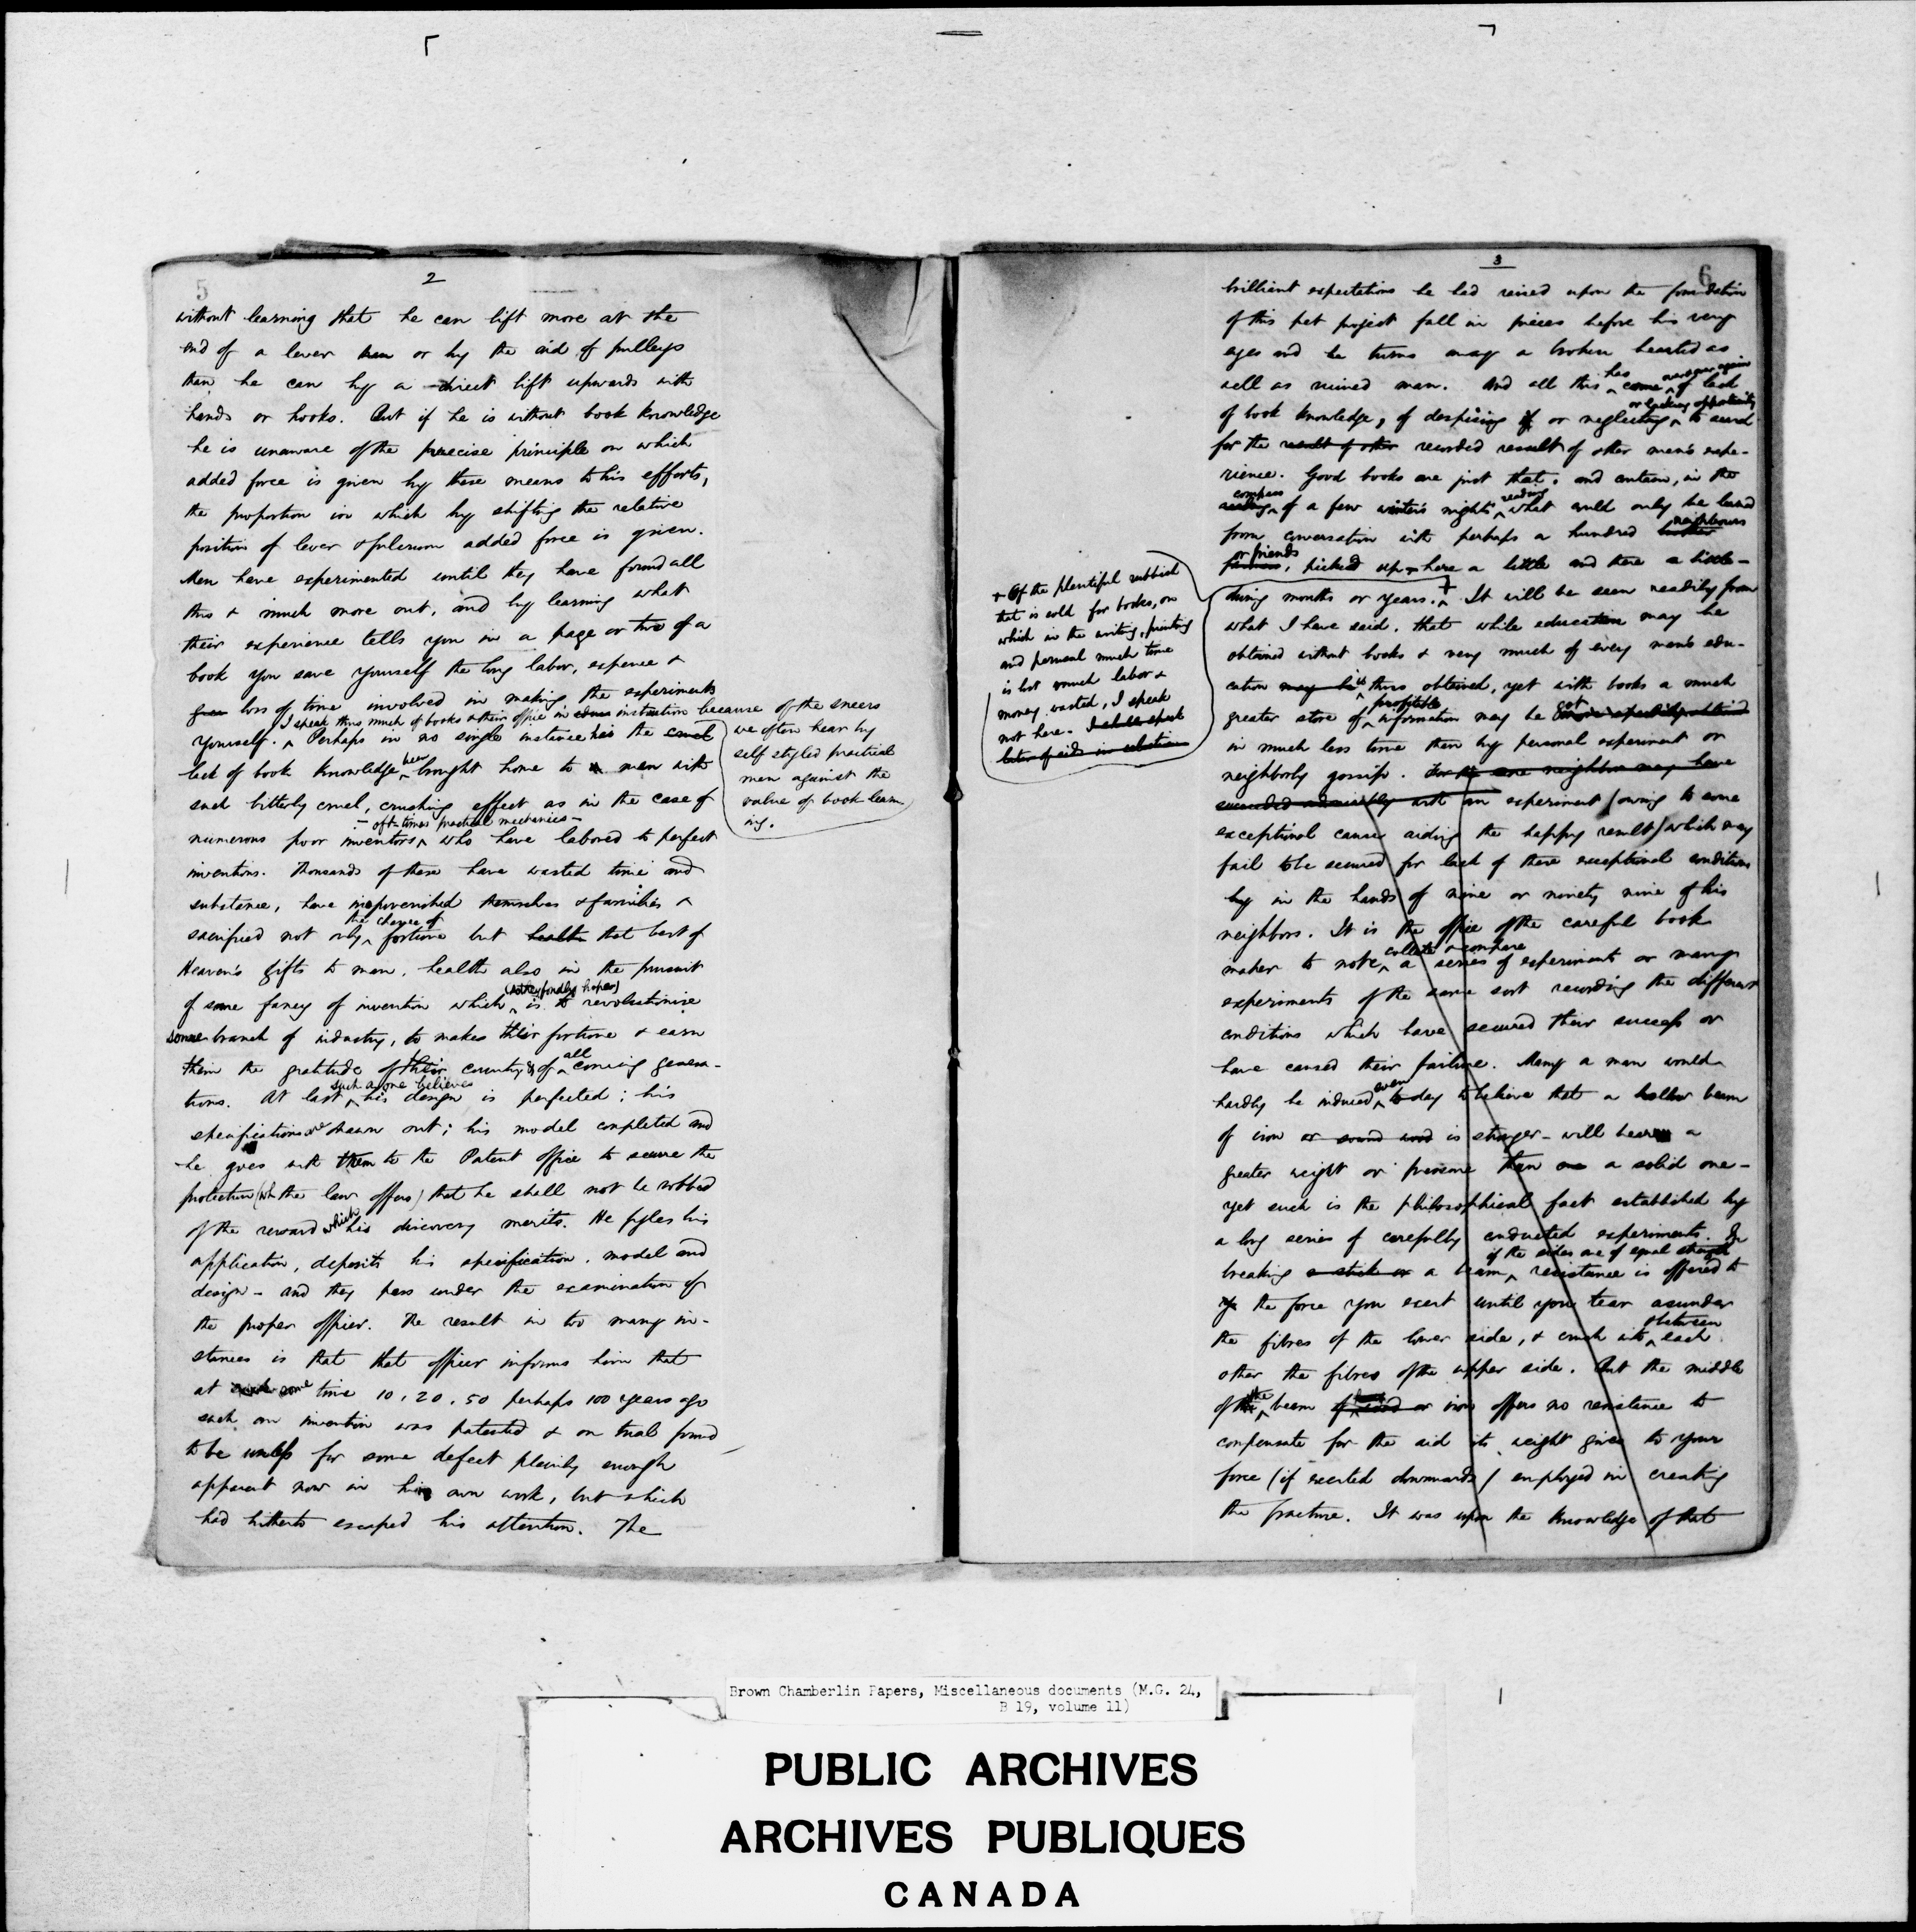 5
2
without learning that he can lift more at the
end of a lever or by the aid of pulleys
than he can by a direct lift upwards with
hands or hooks. But if he is without book knowledge
he is unaware of the precise principle on which
added force is given by these means to his efforts,
the proportion in which by shifting the relative
position of lever & fulcrum added force is given.
Men have experimented until they have found all
this & much more out, and by learning what
their experience tells you in a page or two of a
book you save yourself the long labor, expense &
loss of time involved in making the experiments
I speak thus much of books & their office in instruction because of the sneers
we often hear by
self styled practical
men against the
value of book learn
ing.
yourself. ^ Perhaps in no single instance has the cruel
lack of book knowledge ^ been brought home to men with
such bitterly cruel, crushing effect as in the case of
- oft-times practical mechanics -
numerous poor inventors ^ who have labored to perfect
inventions. Thousands of these have wasted time and
substance, have impoverished themselves & families &
the chance of
sacrificed not only ^ fortune but health that best of
Heaven's gifts to man, health also in the pursuit
(as they fondly hope)
of some fancy of invention which ^ is to revolutionize
some branch of industry, to makes their fortune & earn
all
them the gratitude of their country & of ^ coming genera-
such a one believes
tions. At last ^ his design is perfected; his
specifications are drawn out; his model completed and
he goes with them to the Patent Office to secure the
protection (wh the law offers) that he shall not be robbed
of the reward which his discovery merits. He fyles his
application, deposits his specification, model and
design - and they pass under the examination of
the proper officer. The result in too many in-
stances is that that officer informs him that
at some time 10, 20, 50 perhaps 100 years ago
such an invention was patented & on trial found
to be useless for some defect plainly enough
apparent now in his own work, but which
had hitherto escaped his attention. The
3
6
brilliant expectations he had raised upon the foundation
of this pet project fall in pieces before his very
eyes and he turns away a broken hearted as
has over & over again
well as ruined man. And all this ^ come ^ of lack
or lacking opportunity
of book knowledge, of despising or neglecting ^ to search
for the result of other recorded result of other men's expe-
rience. Good books are just that, and contain, in the
compass reading
^ of a few winter's nights ^ what could only be learned
neighbours
from conversation with perhaps a hundred
or friends
farmers, picked up here a little and there a little -
during months or years. ^ + It will be seen readily from
+ Of the plentiful rubbish
that is sold for books, on
which in the writing, printing
and perusal much time
is lost much labor &
money wasted, I speak
not here. I shall speak
later of aids in selection
what I have said, that while education may be
obtained without books & very much of every man's edu-
cation may be is ^ thus obtained, yet with books a much
profitable got
greater store of ^ information may be more speedily obtained
in much less time than by personal experiment or
neighborly gossip. For one neighbor may have
succeeded admirably with an experiment (owing to some
exceptional causes aiding the happy result) which may
fail to be secured for lack of these exceptional conditions
by in the hands of nine or ninety nine of his
neighbors. It is the office of the careful book
collate & compare
maker to note ^ a series of experiments or many
experiments of the same sort recording the different
conditions which have secured their success or
have caused their failure. Many a man would
even
hardly be induced ^ to day to believe that a hollow beam
of iron or sound wood is stronger - will bear a
greater weight or pressure than a solid one -
yet such is the philosophical fact established by
a long series of carefully conducted experiments. In
if the sides are of equal strength
breaking a stick or a beam ^ resistance is offered to
the force you exert until you tear asunder
between
the fibres of the lower side, & crush into ^ each
other the fibres of the upper side. But the middle
of the ^ beam of wood or iron offers no resistance to
compensate for the aid its weight gives to your
force (if exerted downwards) employed in creating
the fracture. It was upon the knowledge of that
Brown Chamberlin Papers, Miscellaneous documents (M.G. 24,
B 19, volume 11)
PUBLIC ARCHIVES
ARCHIVES PUBLIQUES
CANADA